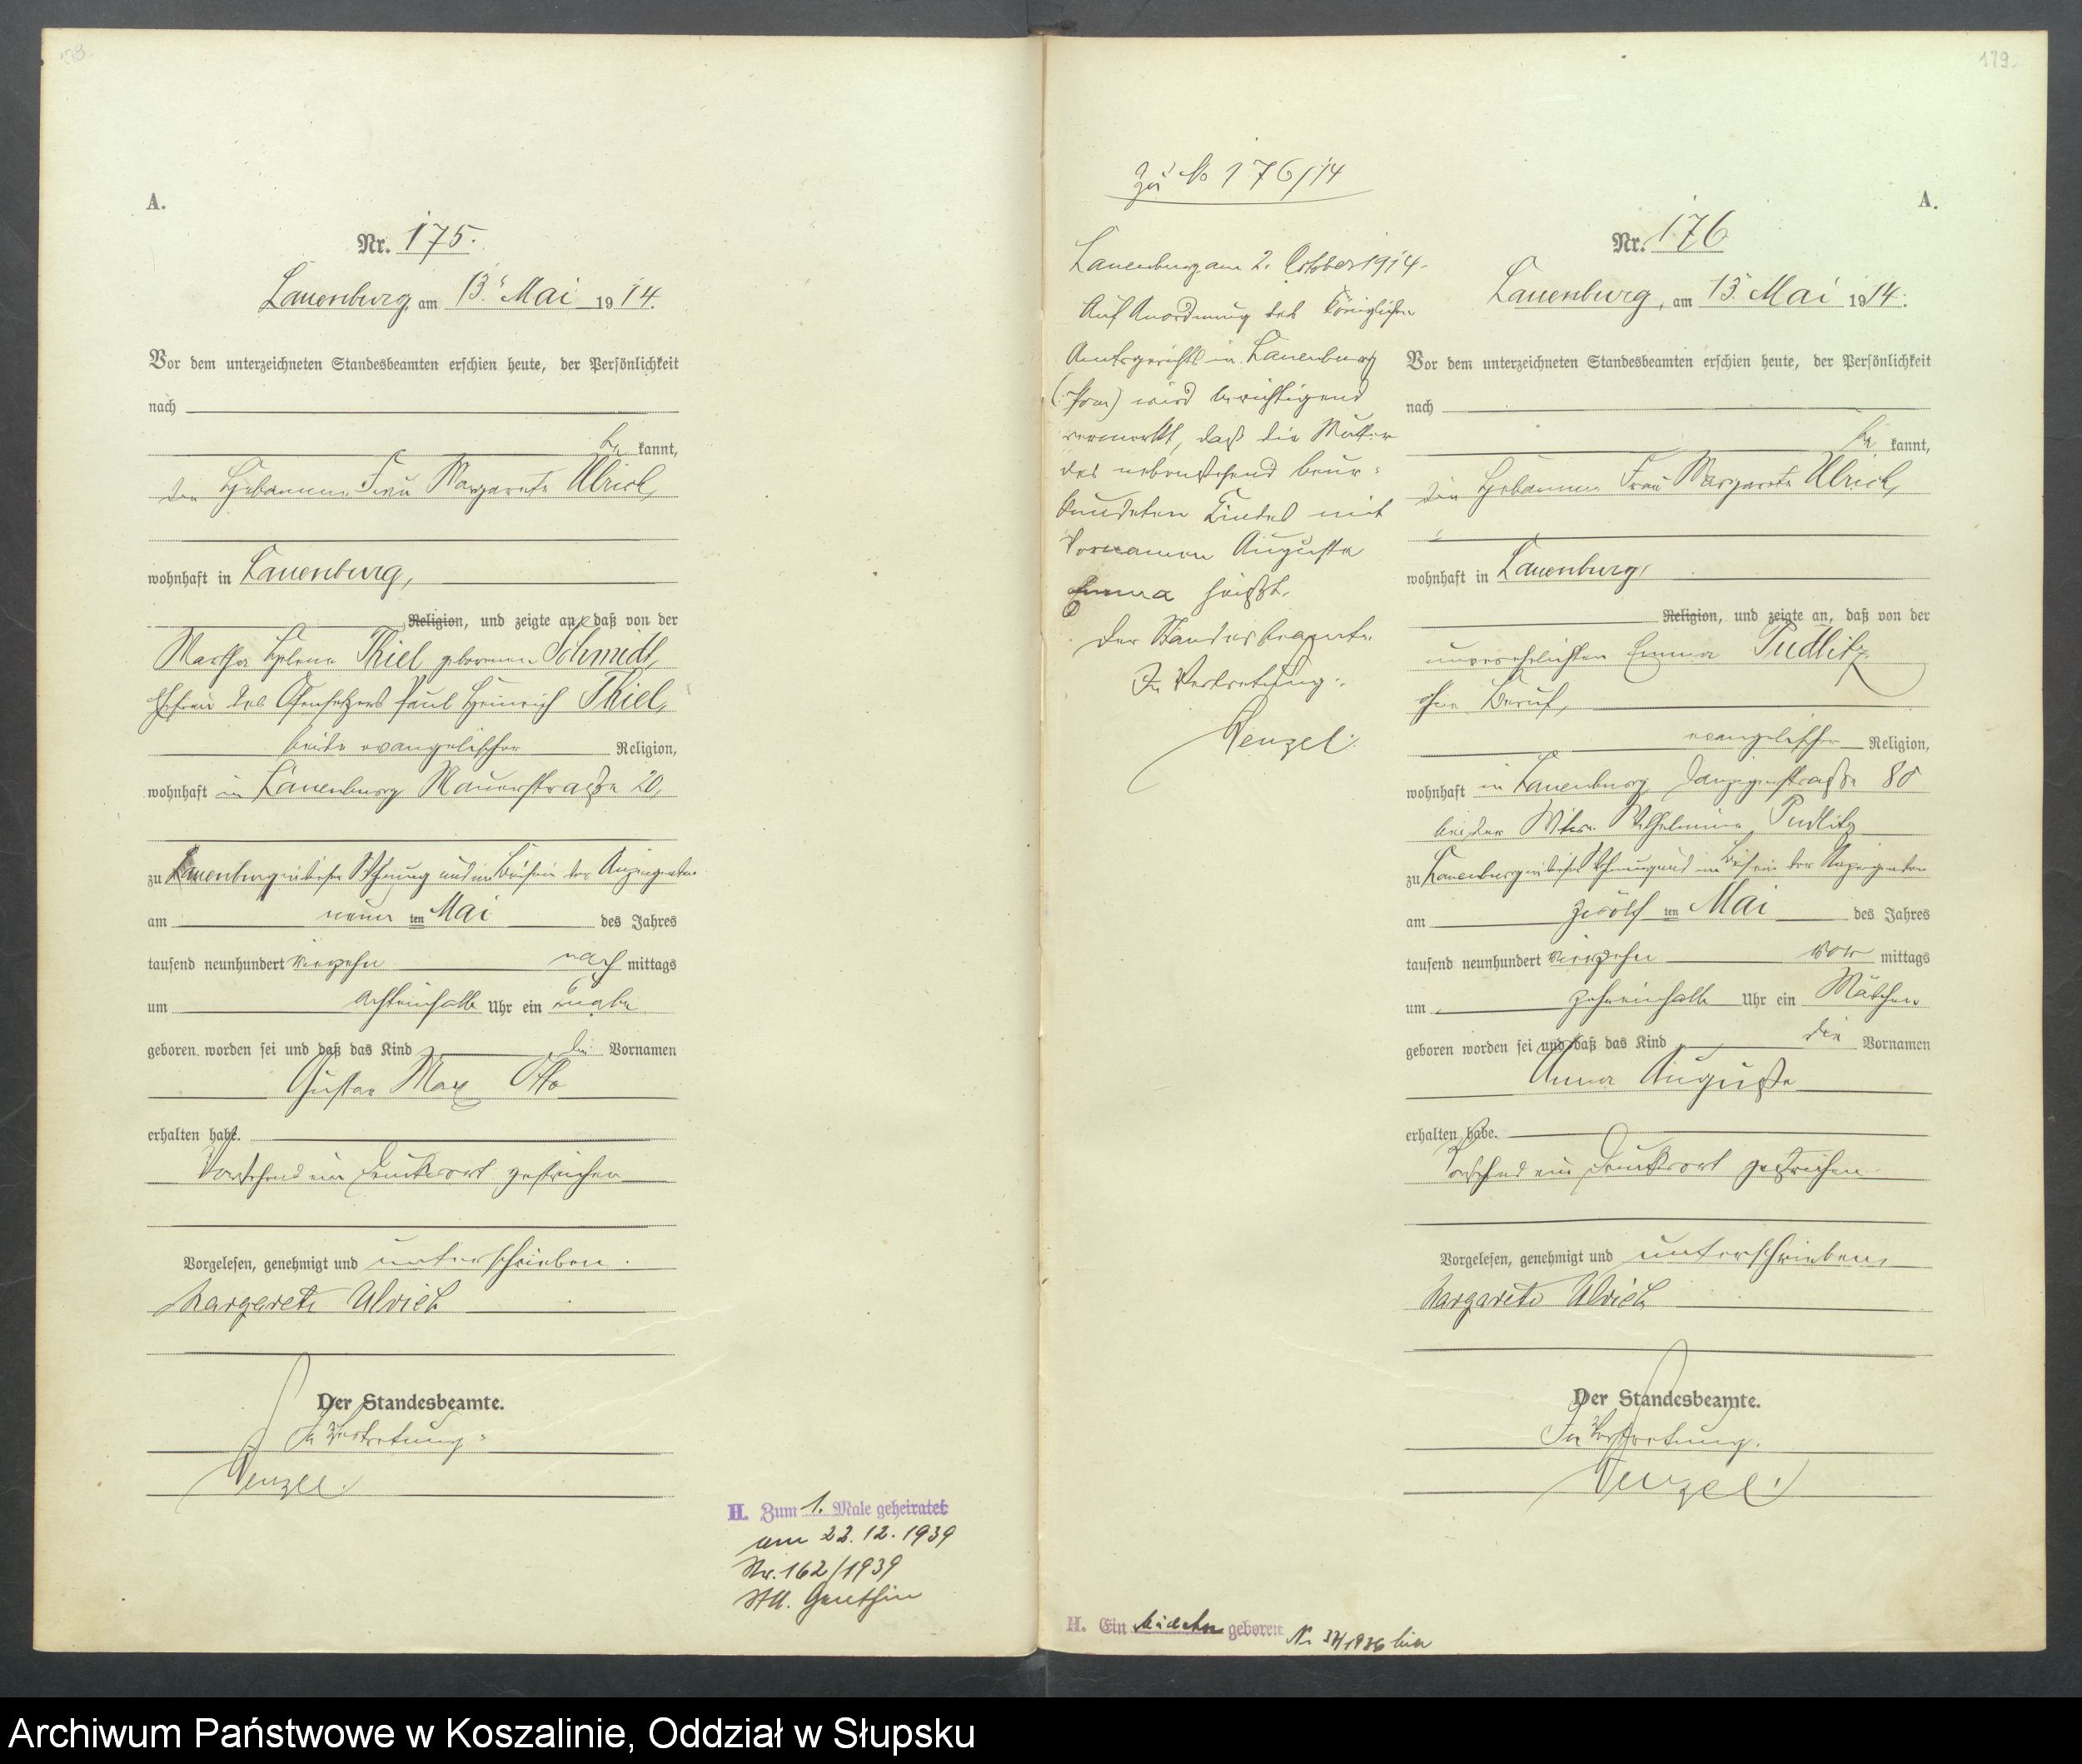 A.
Nr. 175.
Lauenburg, am 13. Mai 1914.
Vor dem unterzeichneten Standesbeamten erschien heute, der Persönlichkeit
nach
be kannt,
die Hebamme Frau Margarete Ulrich,
wohnhaft in Lauenburg,
Religion, und zeigte an, daß von der
Martha Helene Thiel geborenen Schmidt,
Ehefrau des Ofensetzers Paul Heinrich Thiel,
beide evangelischer Religion,
wohnhaft in Lauenburg Mauerstraße 20,
zu Lauenburg in dieser Wohnung und im Beisein der Anzeigenden
am neun ten Mai des Jahres
tausend neunhundert vierzehn nach mittags
um achteinhalb Uhr ein Knabe
geboren worden sei und daß das Kind die Vornamen
Gustav Max Otto
erhalten habe.
Vorstehend ein Druckwort gestrichen
Vorgelesen, genehmigt und unterschrieben.
Margarete Ulrich
Der Standesbeamte.
In Vertretung:
Wenzel.
H. Zum 1. Male geheiratet
am 22.12.1939
Nr. 162/1939
StA. Genthin
179
zu No 176/14
Lauenburg am 2. October 1914.
Auf Anordnung des Königlichen
Amtsgerichts in Lauenburg
(Pom) wird berichtigend
vermerkt, daß die Mutter
des nebenstehend beur-
kundeten Kindes mit
Vornamen Auguste
Emma heißt.
Der Standesbeamte.
In Vertretung:
Wenzel.
A.
Nr. 176
Lauenburg, am 13. Mai 1914.
Vor dem unterzeichneten Standesbeamten erschien heute, der Persönlichkeit
nach
be kannt,
die Hebamme Frau Margarete Ulrich,
wohnhaft in Lauenburg,
Religion, und zeigte an, daß von der
unverehelichten Emma Pudlitz
ohne Beruf,
evangelischer Religion,
wohnhaft in Lauenburg, Danzigerstraße 80
bei der Witwe Wilhelmine Pudlitz
zu Lauenburg in dieser Wohnung und im Beisein der Anzeigenden
am zwölf ten Mai des Jahres
tausend neunhundert vierzehn vor mittags
um zehneinhalb Uhr ein Mädchen
geboren worden sei und daß das Kind die Vornamen
Anna Auguste
erhalten habe.
Vorstehend ein Druckwort gestrichen
Vorgelesen, genehmigt und unterschrieben,
Margarete Ulrich
Der Standesbeamte.
In Vertretung.
Wenzel.
H. Ein Mädchen geboren Nr. /1936 hier
Archiwum Państwowe w Koszalinie, Oddział w Słupsku